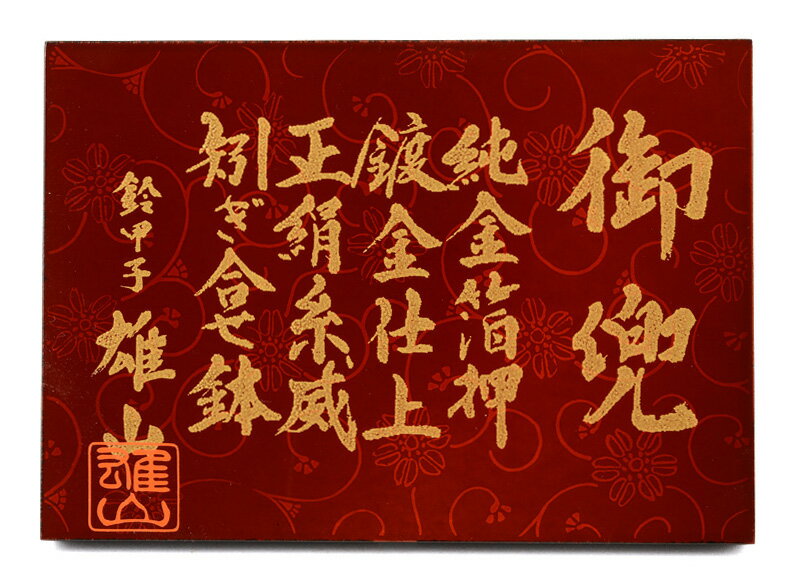 御兜
純金箔押
鍍金仕上
正絹糸威
矧ぎ合せ鉢
鈴甲子
雄山
雄山